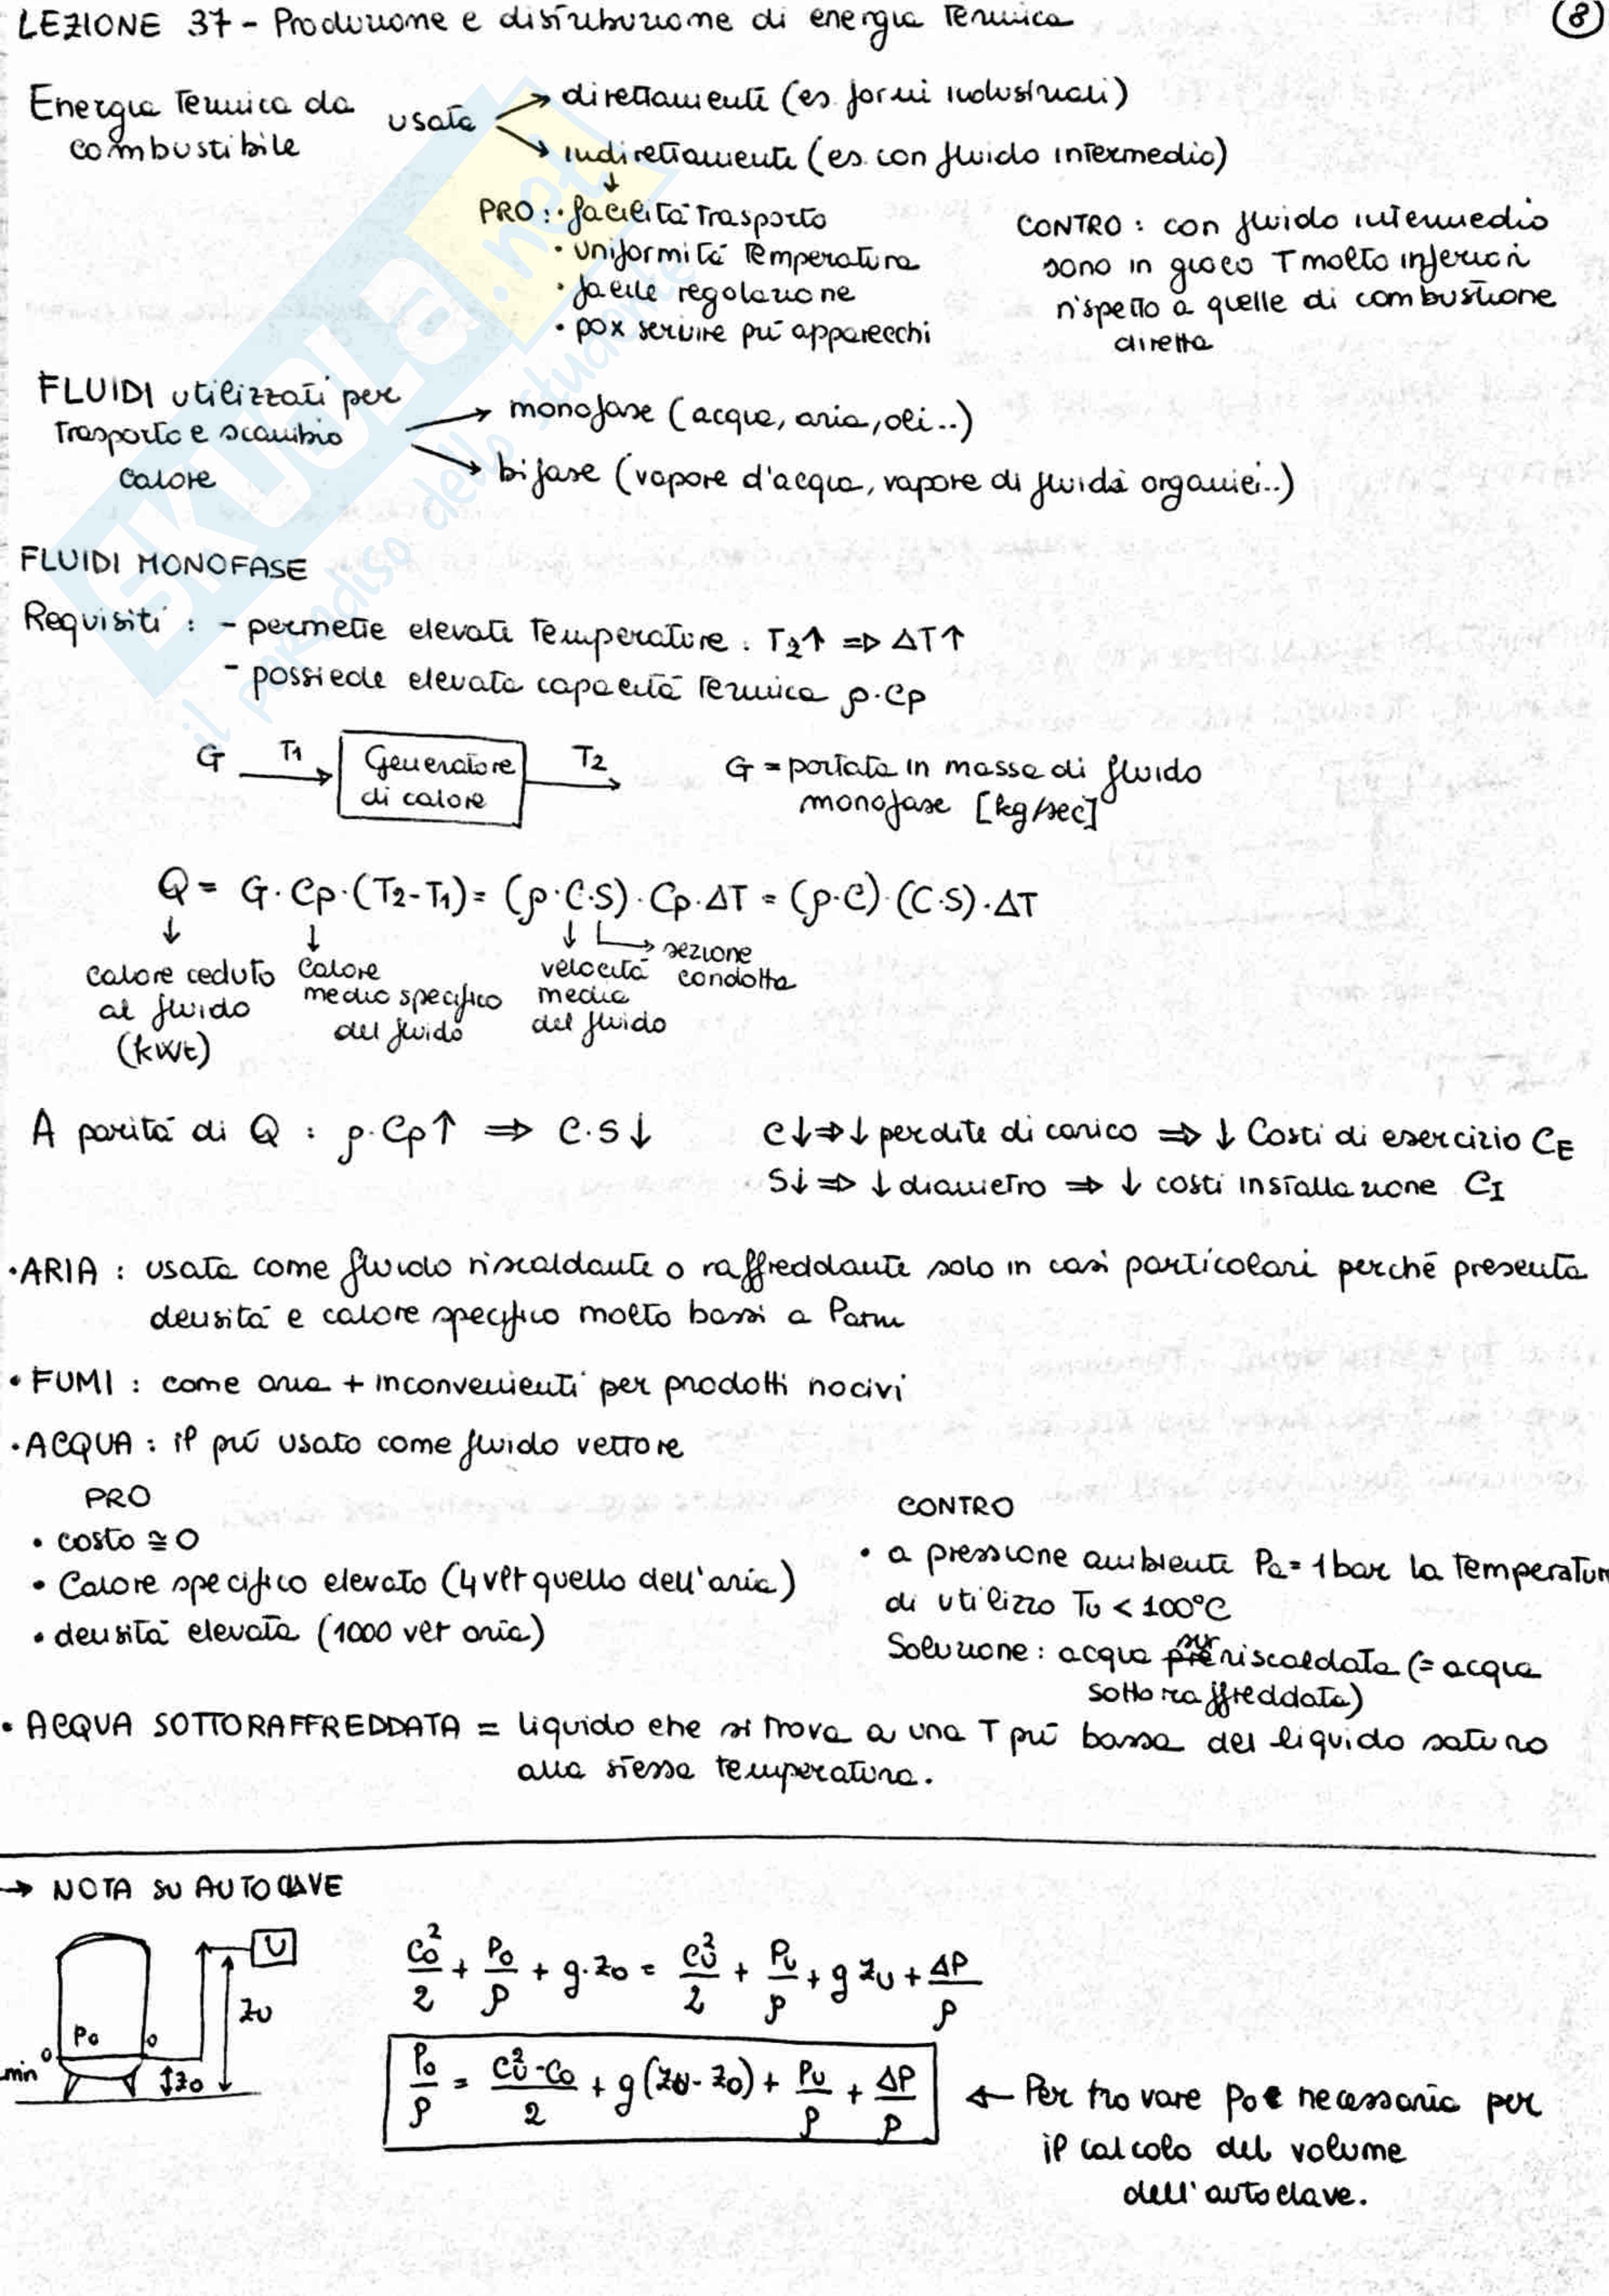 LEZIONE 37 - Produzione e distribuzione di energia Termica
(8)
Energia Termica da combustibile usata → direttamente (es. forni industriali)
→ indirettamente (es. con fluido intermedio)
PRO: · facilità trasporto
· uniformità Temperatura
· facile regolazione
· pox servire più apparecchi
CONTRO: con fluido intermedio
sono in gioco T molto inferiori
rispetto a quelle di combustione
diretta
FLUIDI utilizzati per
Trasporto e scambio
calore
→ monofase (acqua, aria, oli..)
→ bifase (vapore d'acqua, vapore di fluidi organici..)
FLUIDI MONOFASE
Requisiti: - permette elevate Temperature: T2↑ => ΔT↑
- possiede elevata capacità Termica ρ·Cp
G T1 → Generatore di calore T2 →
G = portata in massa di fluido
monofase [kg/sec]
Q = G·Cp·(T2-T1) = (ρ·C·S)·Cp·ΔT = (ρ·C)·(C·S)·ΔT
calore ceduto
al fluido
(kWt)
Calore
medio specifico
del fluido
velocità
media
del fluido
sezione
condotta
A parità di Q : ρ·Cp↑ => C·S↓
C↓ => ↓ perdite di carico => ↓ Costi di esercizio CE
S↓ => ↓ diametro => ↓ costi installazione CI
· ARIA : usata come fluido riscaldante o raffreddante solo in casi particolari perché presenta
densità e calore specifico molto bassi a Patm
· FUMI : come aria + inconvenienti per prodotti nocivi
· ACQUA : il più usato come fluido vettore
PRO
· costo ≅ 0
· Calore specifico elevato (4 vlt quello dell'aria)
· densità elevata (1000 vlt aria)
CONTRO
· a pressione ambiente Pa = 1 bar la Temperatur
di utilizzo Tu < 100°C
Soluzione: acqua surriscaldata (= acqua
sottoraffreddata)
· ACQUA SOTTORAFFREDDATA = liquido che si trova a una T più bassa del liquido saturo
alla stessa temperatura.
→ NOTA SU AUTOCLAVE
U
zu
Po
o
o
min
z0
C0²/2 + P0/ρ + g·z0 = Cu²/2 + Pu/ρ + g zu + ΔP/ρ
P0/ρ = Cu²-C0/2 + g(zu-z0) + Pu/ρ + ΔP/ρ
← Per trovare po necessaria per
il calcolo del volume
dell'autoclave.
SKUOLA.net
il paradiso dello studente